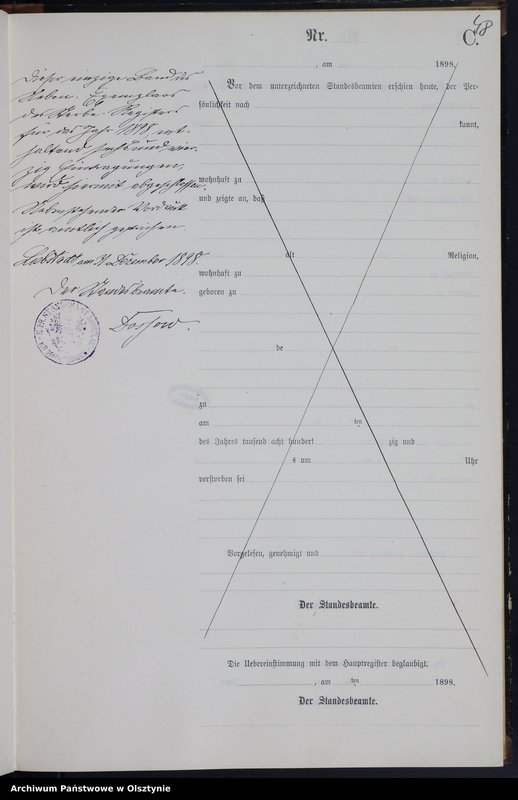 48
Nr.
C.
, am 1898.
Dieser einzige Band des
Neben-Exemplars
des Sterbe-Registers
für das Jahr 1898 ent-
haltend sechsundvier-
zig Eintragungen,
wird hiermit abgeschlossen.
Nebenstehender Vordruck
ist amtlich gestrichen.
am 31 Dezember 1898
Der Standesbeamte.
Vor dem unterzeichneten Standesbeamten erschien heute, der Per-
sönlichkeit nach
kannt,
wohnhaft zu
und zeigte an, daß
alt Religion,
wohnhaft zu
geboren zu
de
zu
am ten
des Jahres tausend acht hundert zig und
s um Uhr
verstorben sei
Vorgelesen, genehmigt und
Der Standesbeamte.
Die Uebereinstimmung mit dem Hauptregister beglaubigt.
, am ten 1898.
Der Standesbeamte.
Archiwum Państwowe w Olsztynie